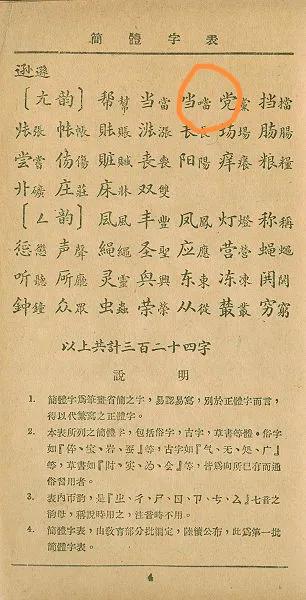 簡體字表
逊遜
〔ㄤ韵〕 帮幫 当當 当噹 党黨 挡擋
张張 帐帳 账賬 涨漲 长長 场場 肠腸
尝嘗 伤傷 赃贓 丧喪 阳陽 痒癢 粮糧
卝礦 庄莊 床牀 双雙
〔ㄥ韵〕 凨風 丰豐 凤鳳 灯燈 称稱
惩懲 声聲 绳繩 圣聖 应應 营營 蝇蠅
听聽 廳 灵靈 兴興 东東 冻凍
钟鐘 众眾 虫蟲 荣榮 从從 叢 穷窮
以上共計三百二十四字
說明
1. 簡體字爲筆畫省簡之字,易認易寫,別於正體字而言,
得以代繁寫之正體字。
2. 本表所列之簡體字,包括俗字,古字,草書等體。俗字
如『体、宝、岩、蚕』等,古字如『气、无、処、广』
等,草書如『时、实、为、会』等,皆爲向所已有而通
俗習用者。
3. 表內帀韵,是『ㄓㄔㄕㄖㄗㄘㄙ』七音之
韵母,稱說時用之,注音時不用。
4. 簡體字表,由敎育部分批編定,陸續公布,此爲第一批
簡體字表。
4